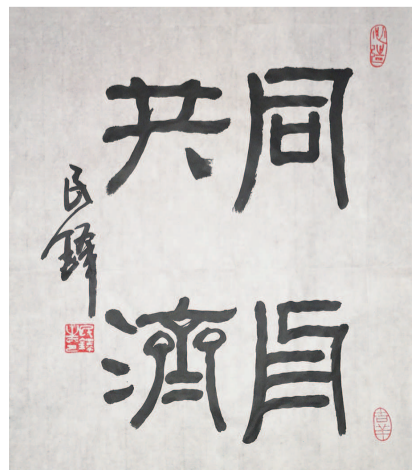 同舟
共濟
民